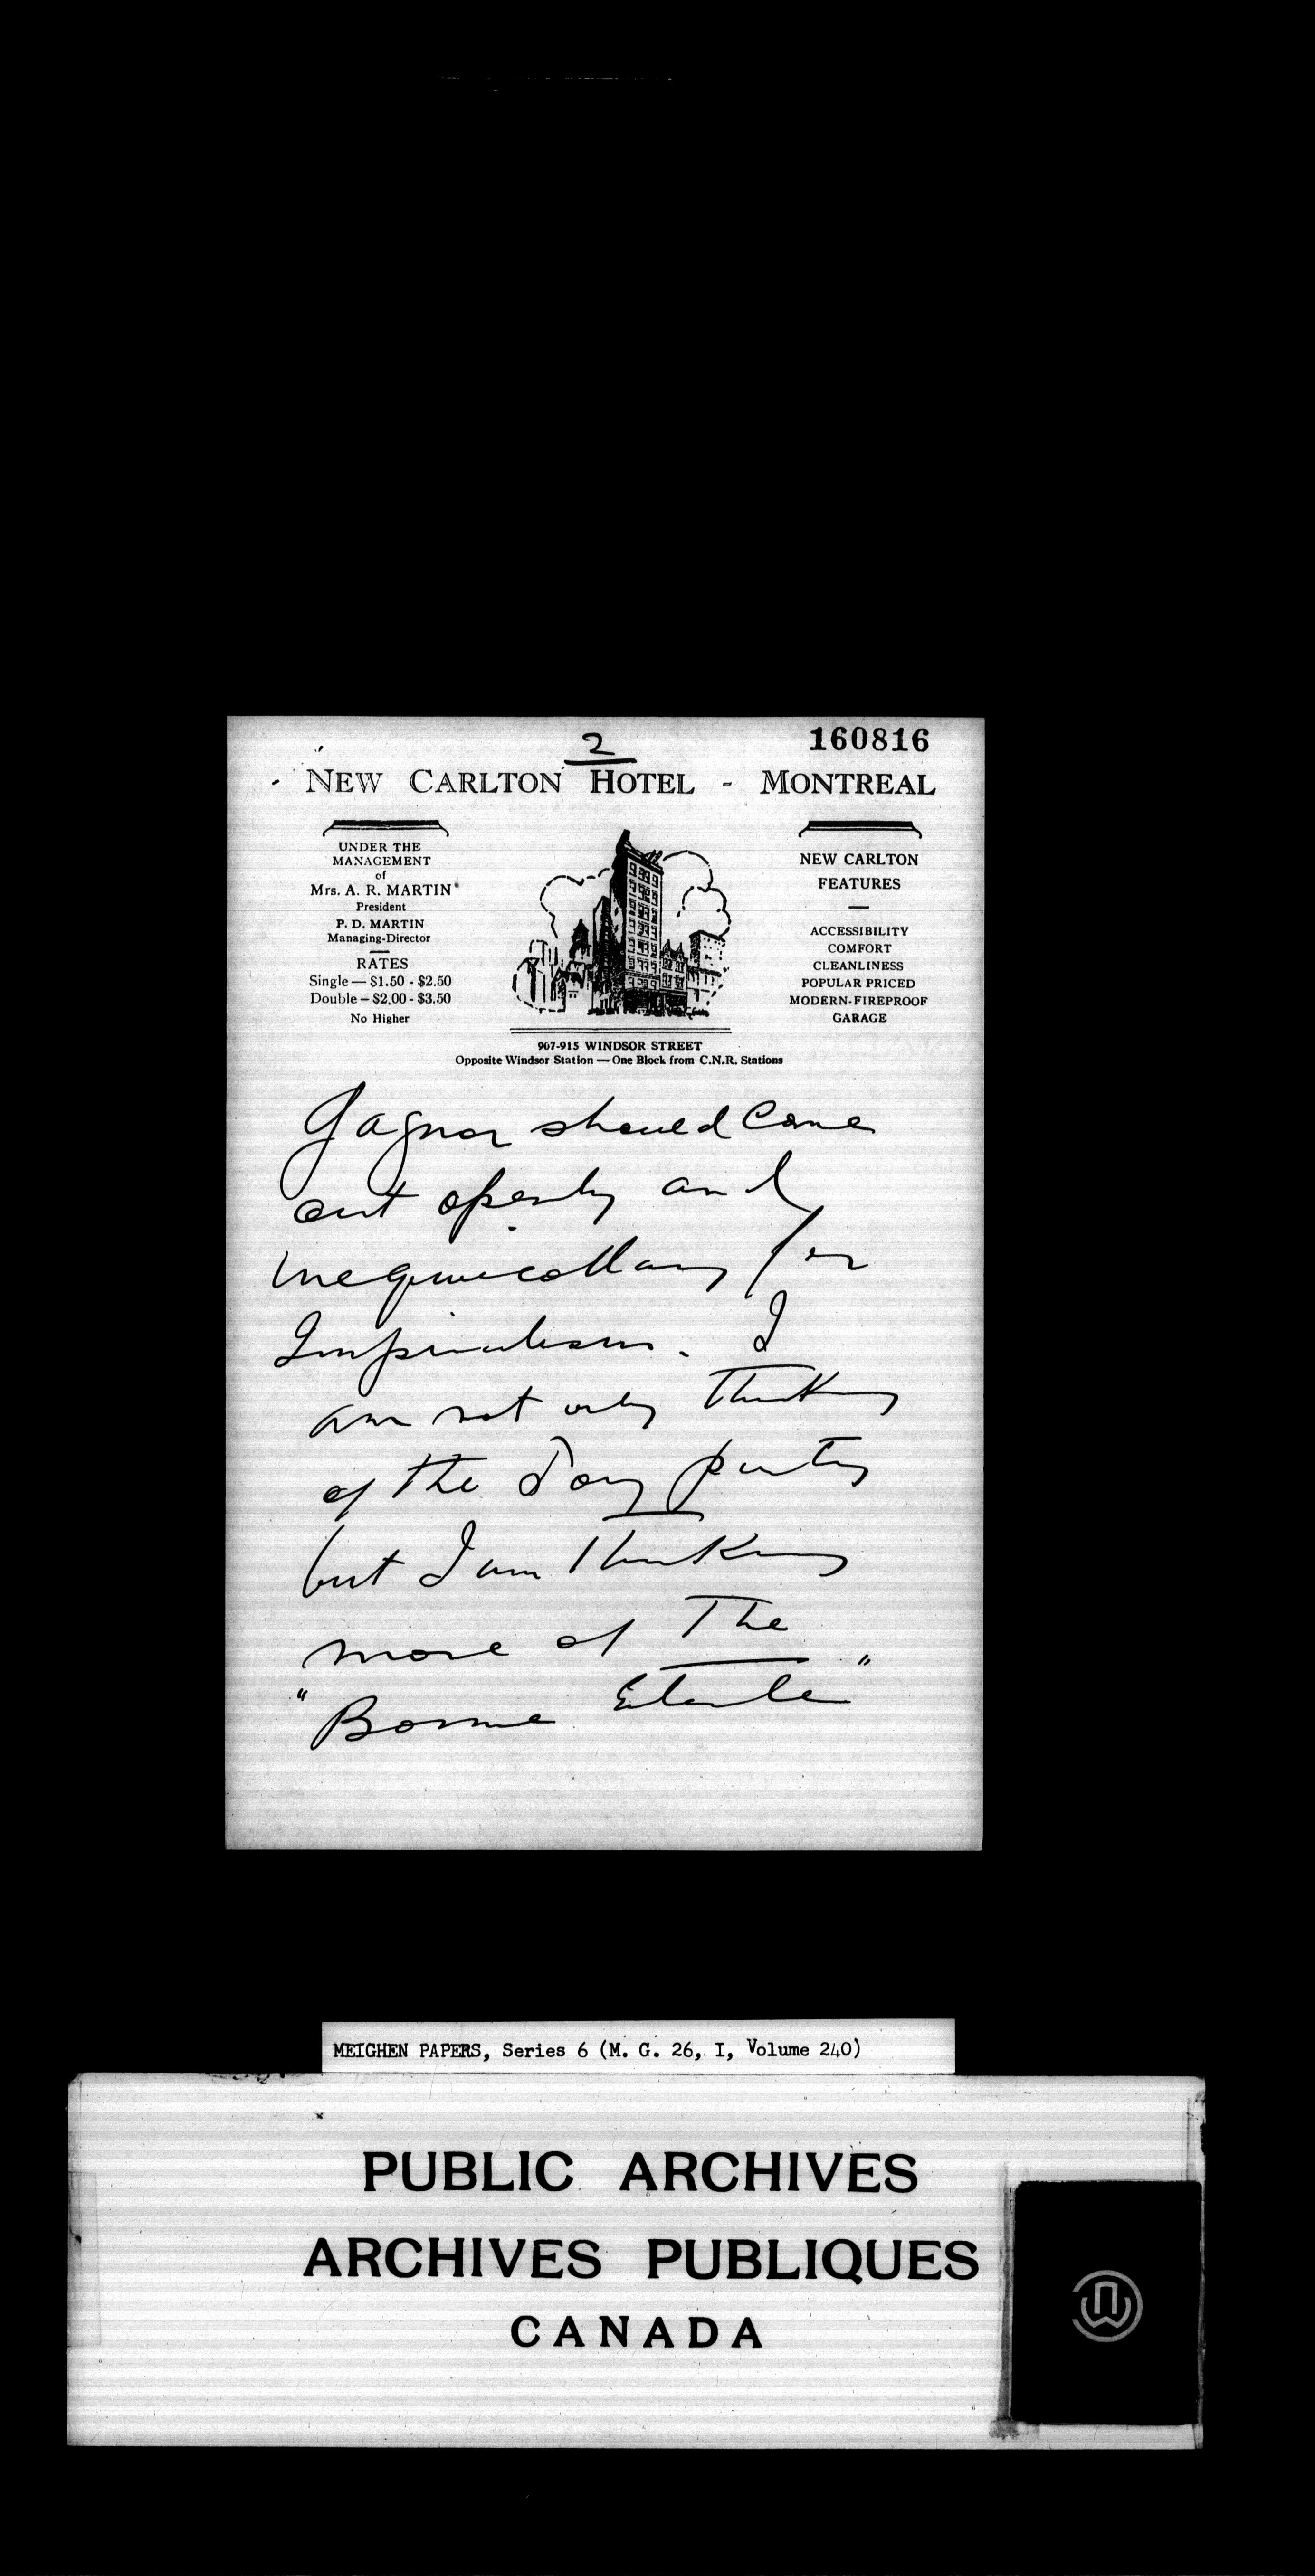 2
160816
NEW CARLTON HOTEL - MONTREAL
UNDER THE
MANAGEMENT
of
Mrs. A. R. MARTIN
President
P. D. MARTIN
Managing-Director
RATES
Single — $1.50 - $2.50
Double – $2.00 - $3.50
No Higher
NEW CARLTON
FEATURES
ACCESSIBILITY
COMFORT
CLEANLINESS
POPULAR PRICED
MODERN-FIREPROOF
GARAGE
907-915 WINDSOR STREET
Opposite Windsor Station — One Block from C.N.R. Stations
Gagnon should come
out openly and
for
Imperialism. I
am not only thinking
of the Tory party
but I am thinking
more of The
"Bonne Entente"
MEIGHEN PAPERS, Series 6 (M. G. 26, I, Volume 240)
PUBLIC ARCHIVES
ARCHIVES PUBLIQUES
CANADA